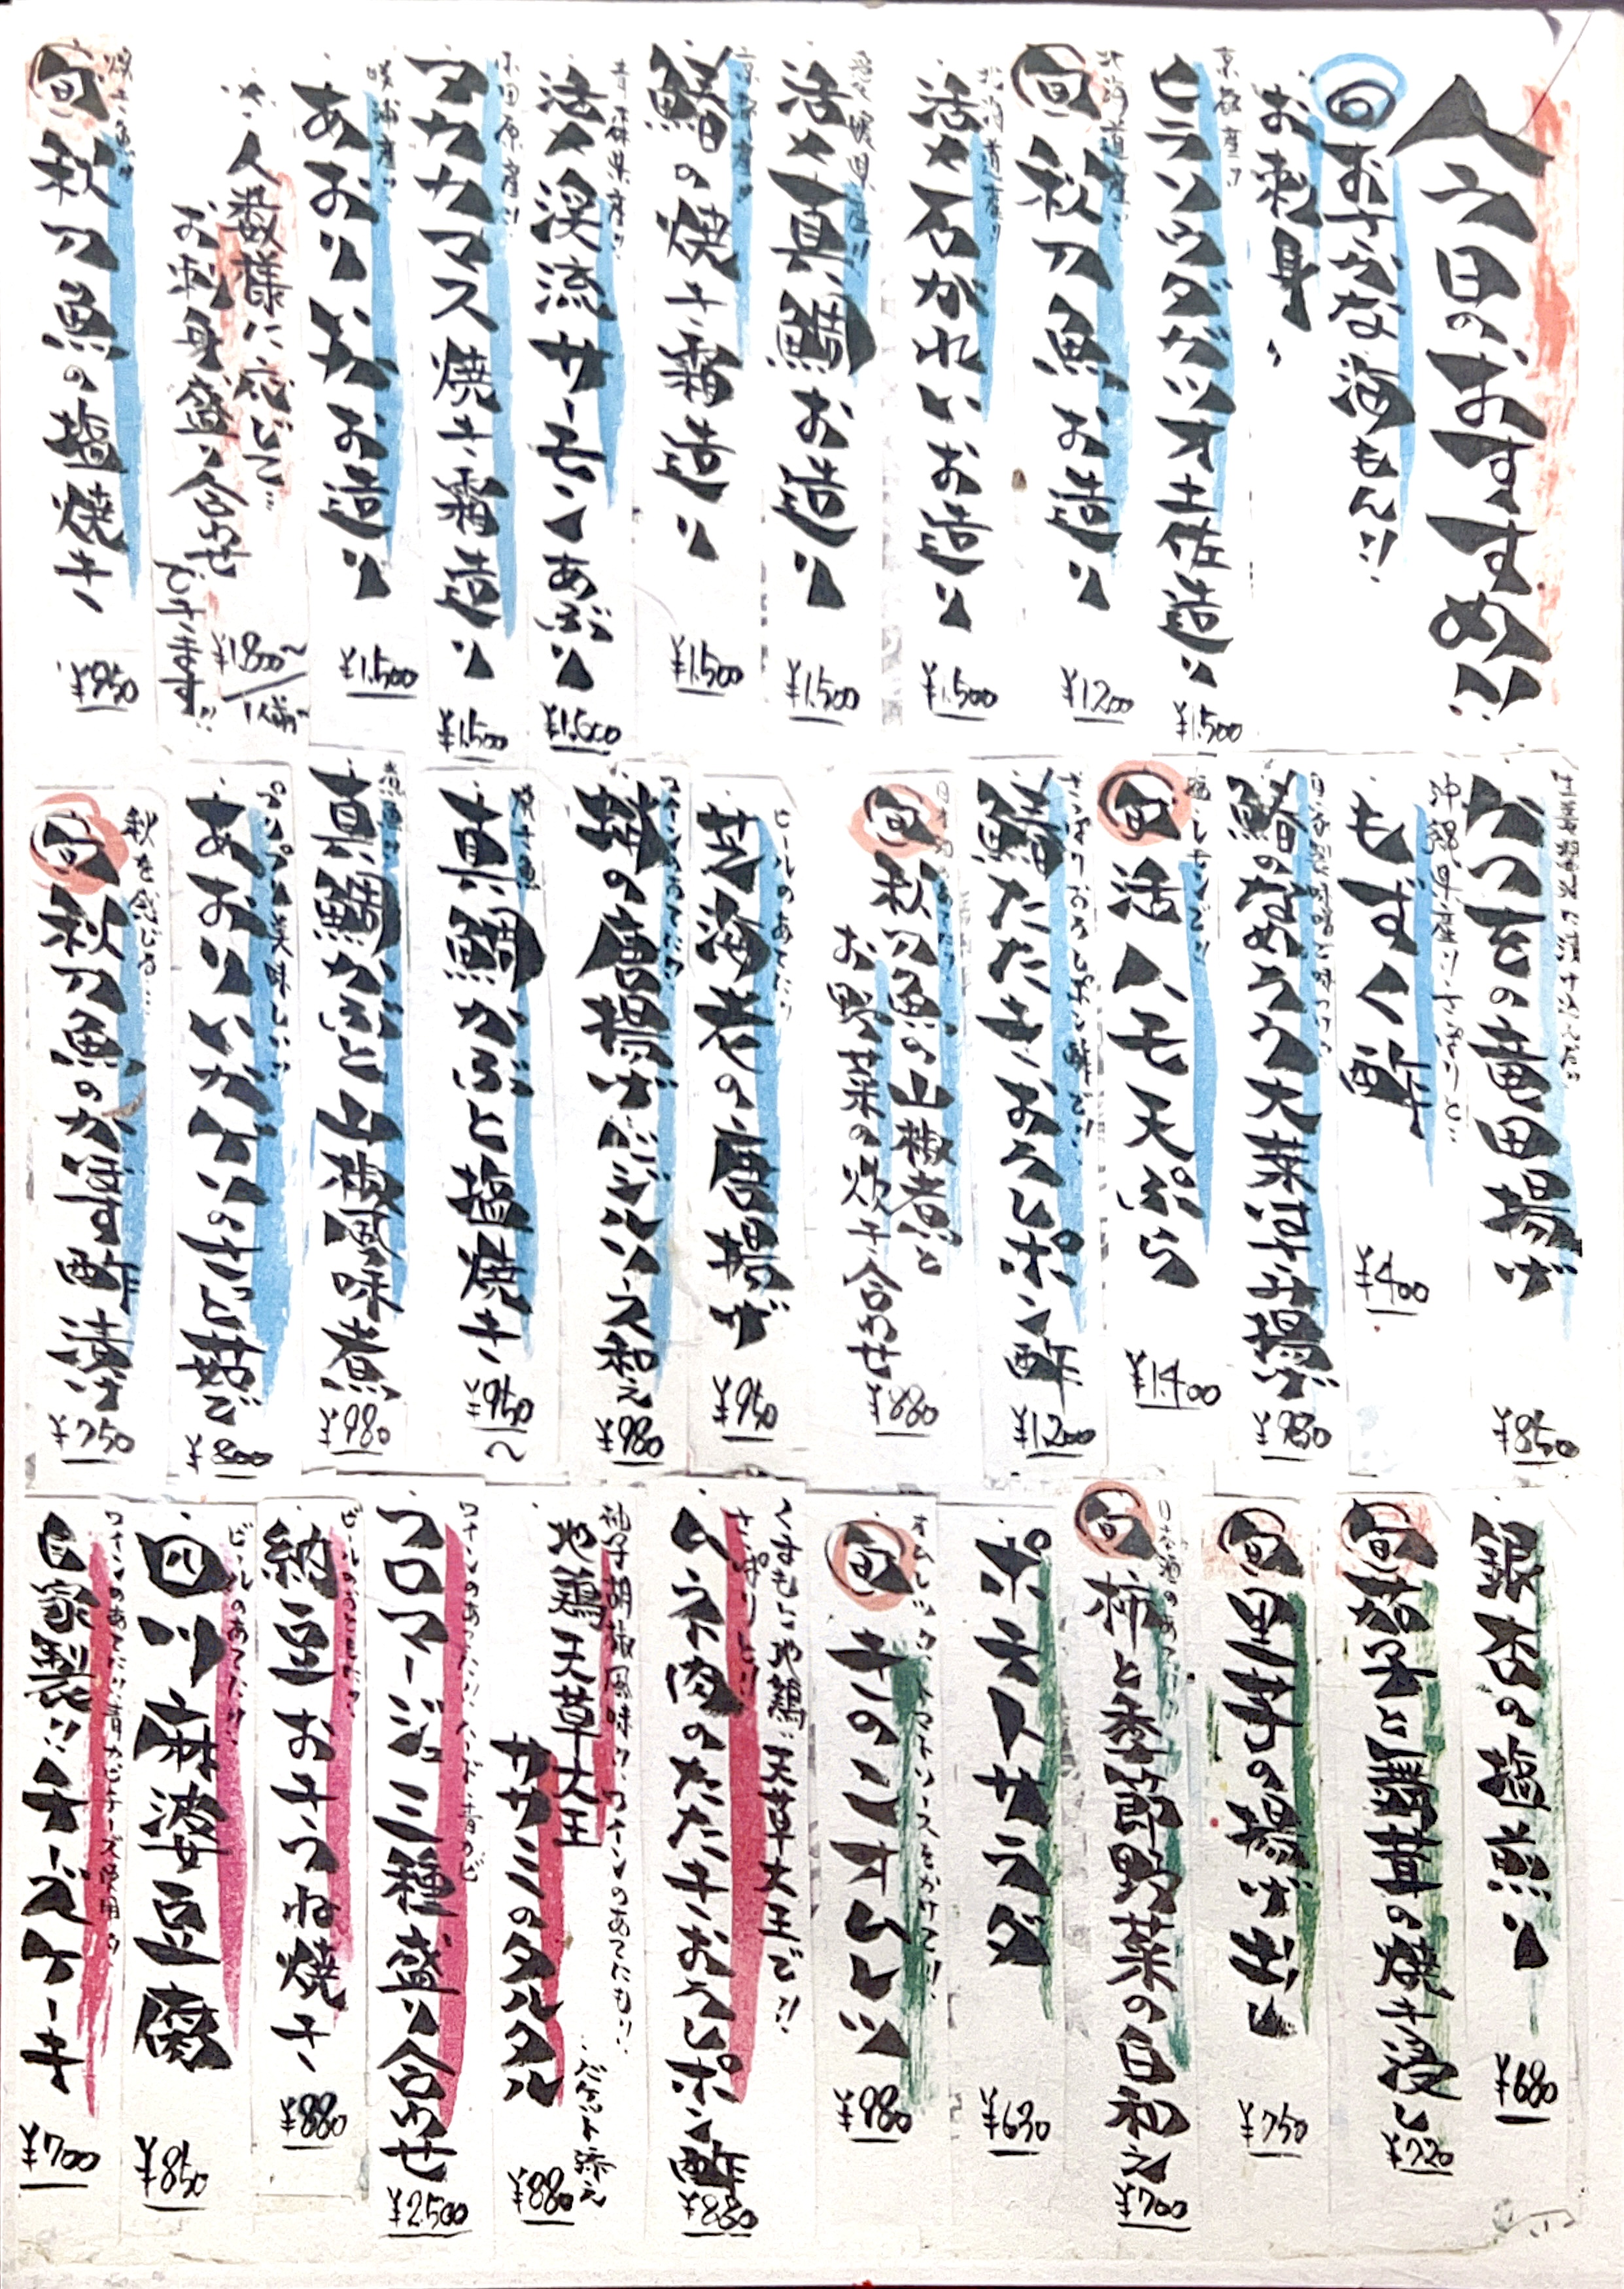 今日のおすすめ!!
旬 おさかな海もん!!
お刺身
京都産!!
ヒラソウダガツオ土佐造り
¥1,500
北海道産!!
旬 秋刀魚お造り
¥1200
北海道産!!
活〆石がれいお造り
¥1,500
愛媛県産!!
活〆真鯛お造り
¥1,500
京都産!!
鰆の焼き霜造り
¥1,500
青森県産!!
活〆渓流サーモンあぶり
¥1,500
小田原産!!
マカマス焼き霜造り
¥1,500
あおりいかお造り
¥1,500
人数様に応じて…
お刺身盛り合わせ
できます!!
¥1800〜/1人前〜
焼き魚!!
旬 秋刀魚の塩焼き
¥950
かつをの竜田揚げ
¥850
沖縄県産!!さっぱりと!!
もずく酢
¥400
鰺のなめろう大葉はさみ揚げ
¥980
塩レモンで!!
旬 活ハモ天ぷら
¥1,400
鰺たたきおろしポン酢
¥1200
旬 秋刀魚の山椒煮と
お野菜の炊き合わせ
¥880
ビールのあてに!!
芝海老の唐揚げ
¥950
ワインのあてに!!
鱧の唐揚げバジルソース和え
¥980
焼き魚
真鯛かぶと塩焼き
¥950〜
煮魚!!
真鯛かぶと山椒風味煮
¥980
プリプリ美味しい!!
あおりいかげいのさっと茹で
¥800
秋を感じる…
旬 秋刀魚のかぼす酢漬け
¥750
銀杏の塩煎り
¥680
旬 茄子と舞茸の焼き浸し
¥720
旬 里芋の揚げ出し
¥750
日本酒のあてに!!
旬 柿と季節野菜の白和え
¥700
ポテトサラダ
¥630
オムレツに、トマトソースをかけて!!
旬 きのこオムレツ
¥980
くまもと地鶏:天草大王で!!
さっぱりと!!
ムネ肉のたたきおろしポン酢
¥880
柚子胡椒風味!!ワインのあてにも!!
地鶏天草大王
ササミのタルタル
バケット添え
¥880
フロマージュ三種盛り合わせ
¥2500
ビールのおともに!!
納豆おきつね焼き
¥880
ビールのあてに!!
四川麻婆豆腐
¥850
ワインのあてに!!青カビチーズ使用!!
自家製!!チーズケーキ
¥700